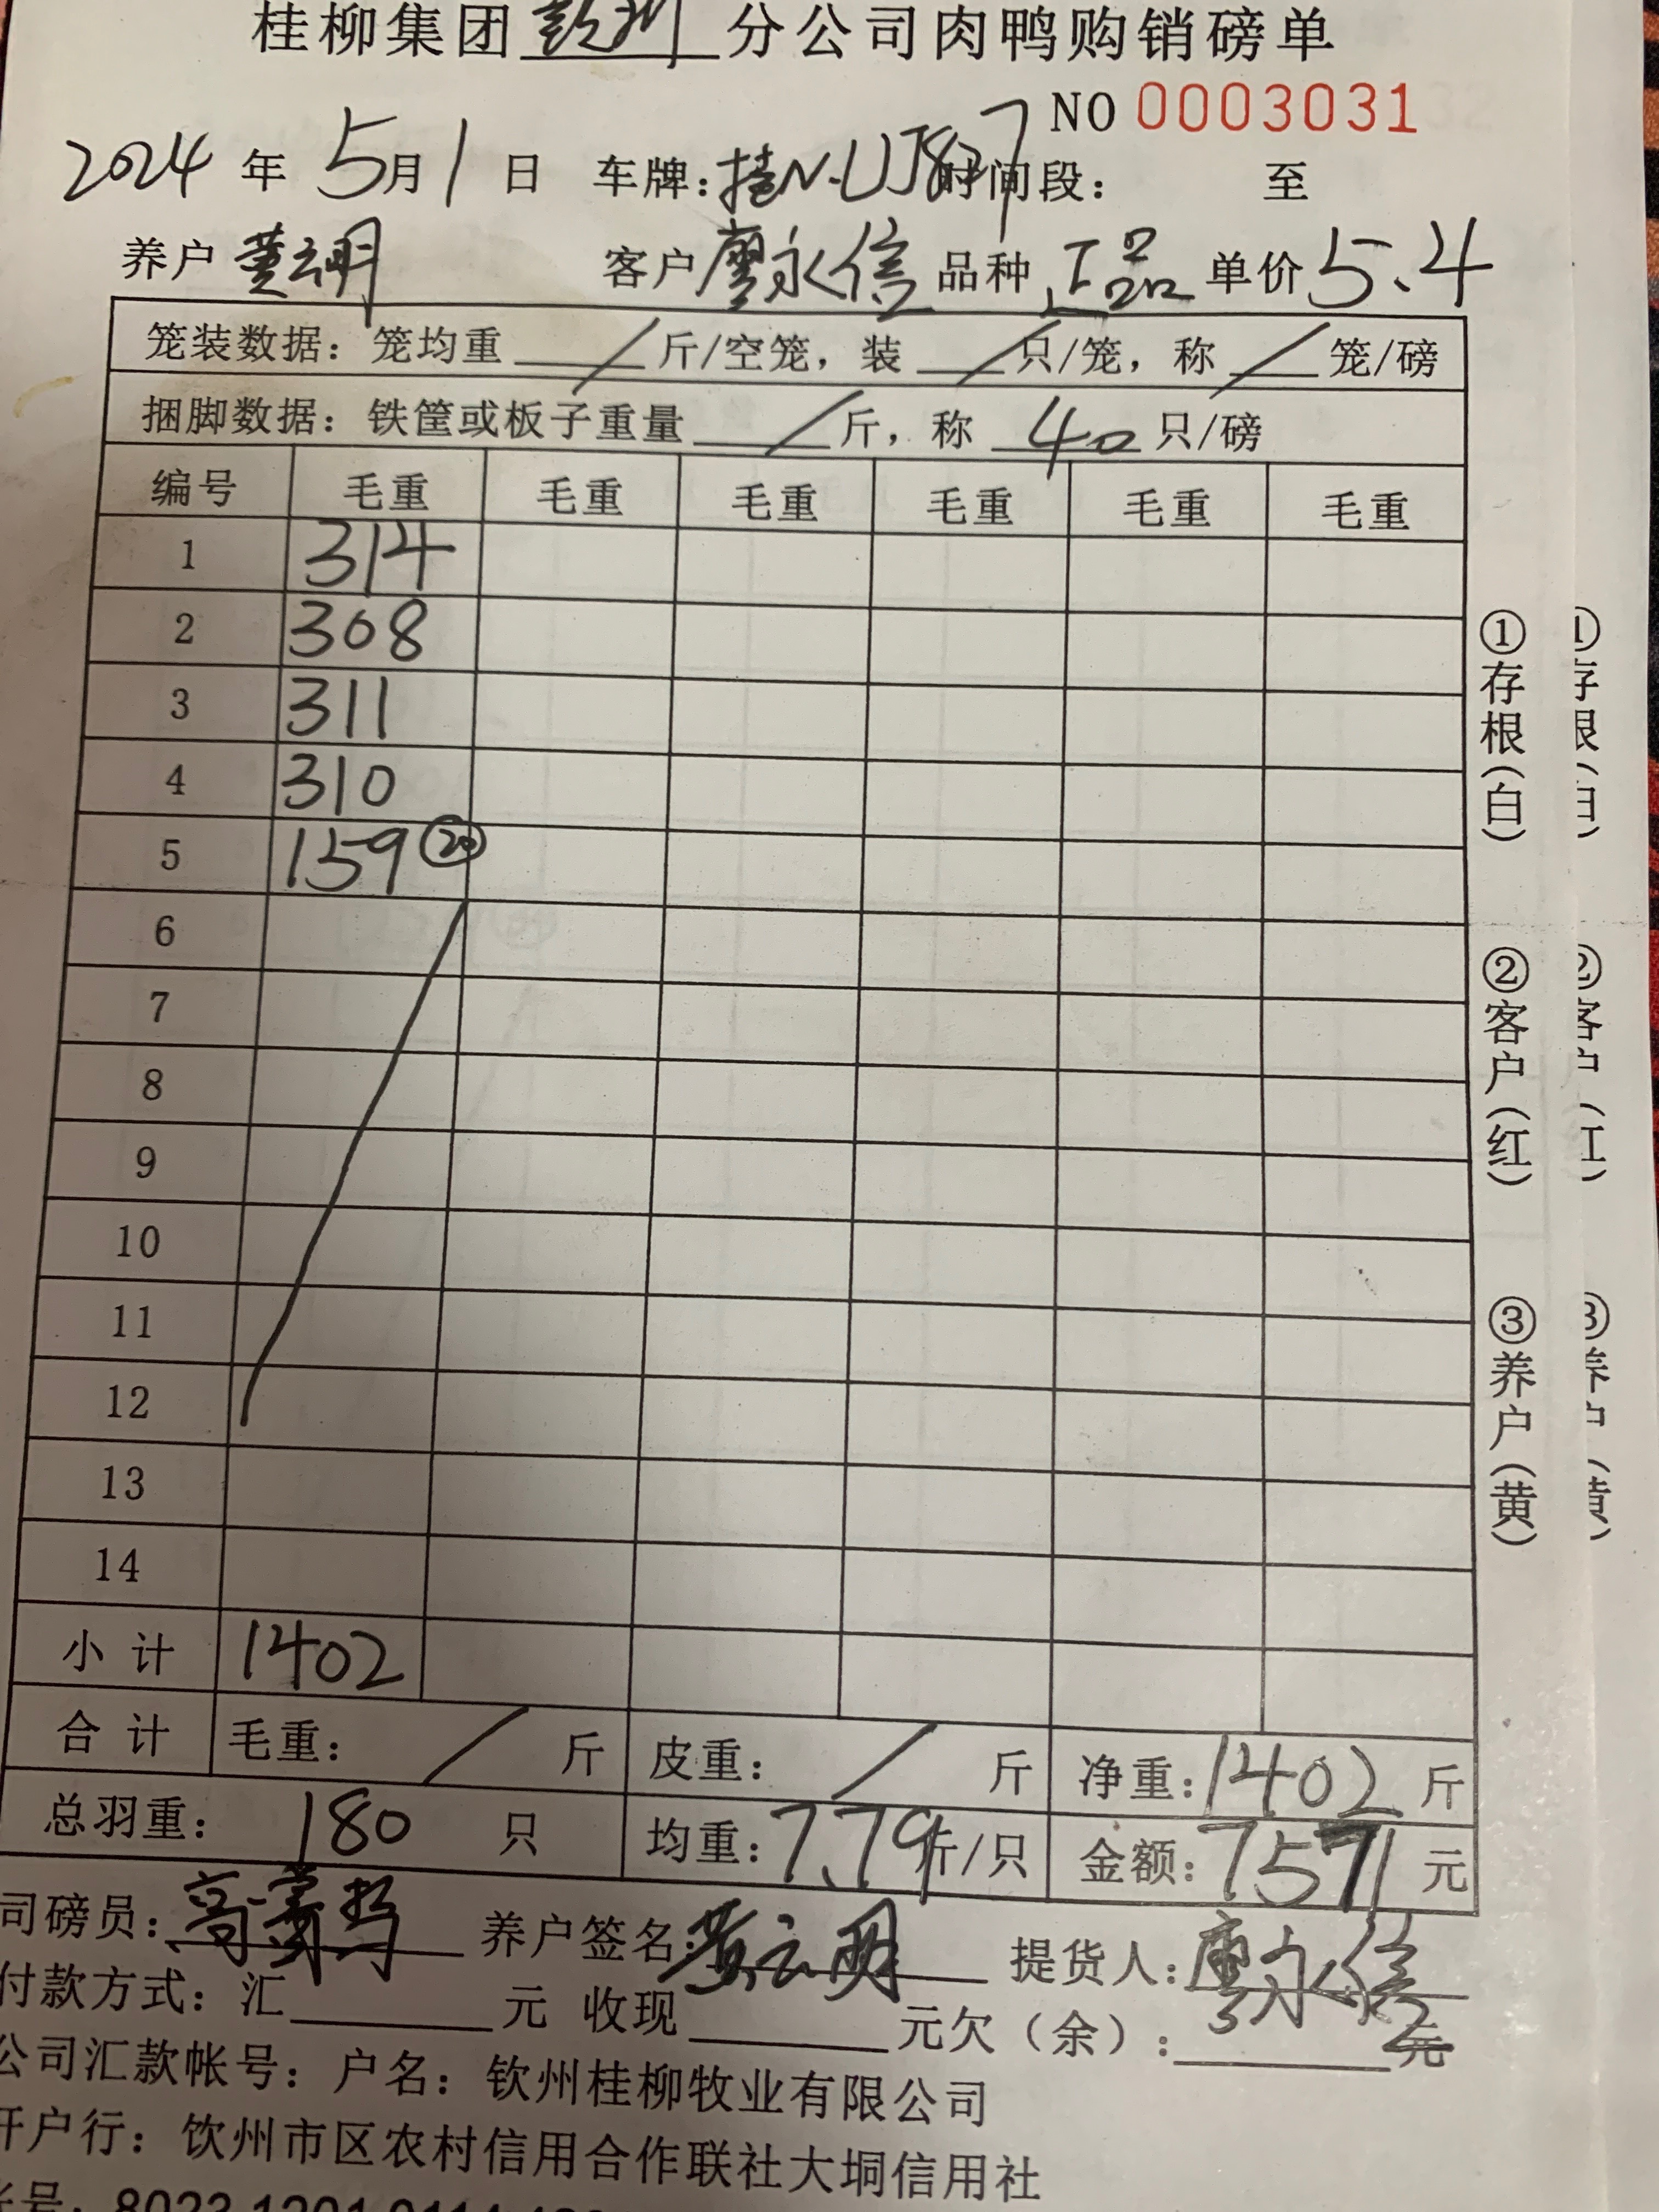 桂柳集团钦州分公司肉鸭购销磅单
NO 0003031
2024 年 5月 1 日 车牌:桂N·UJ827 时间段: 至
养户 黄云明 客户 廖永信 品种 正品 单价 5.4
笼装数据:笼均重 / 斤/空笼,装 / 只/笼,称 / 笼/磅
捆脚数据:铁筐或板子重量 / 斤,称 40 只/磅
编号 毛重 毛重 毛重 毛重 毛重 毛重
1 314
2 308
3 311
4 310
5 159 ⑳
6
7
8
9
10
11
12
13
14
小计 1402
合计 毛重: / 斤 皮重: / 斤 净重:1402 斤
总羽重: 180 只 均重:7.79斤/只 金额:7571 元
司磅员: 养户签名:黄云明 提货人:廖永信
付款方式:汇 元 收现 元欠(余): 元
公司汇款帐号:户名:钦州桂柳牧业有限公司
开户行:钦州市区农村信用合作联社大垌信用社
①存根(白)
②客户(红)
③养户(黄)